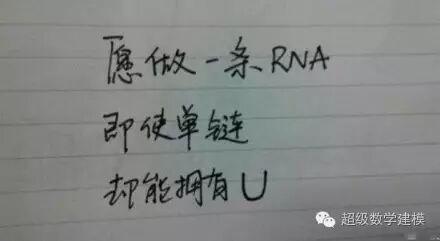 愿做一条RNA
即使单链
却能拥有U
超级数学建模